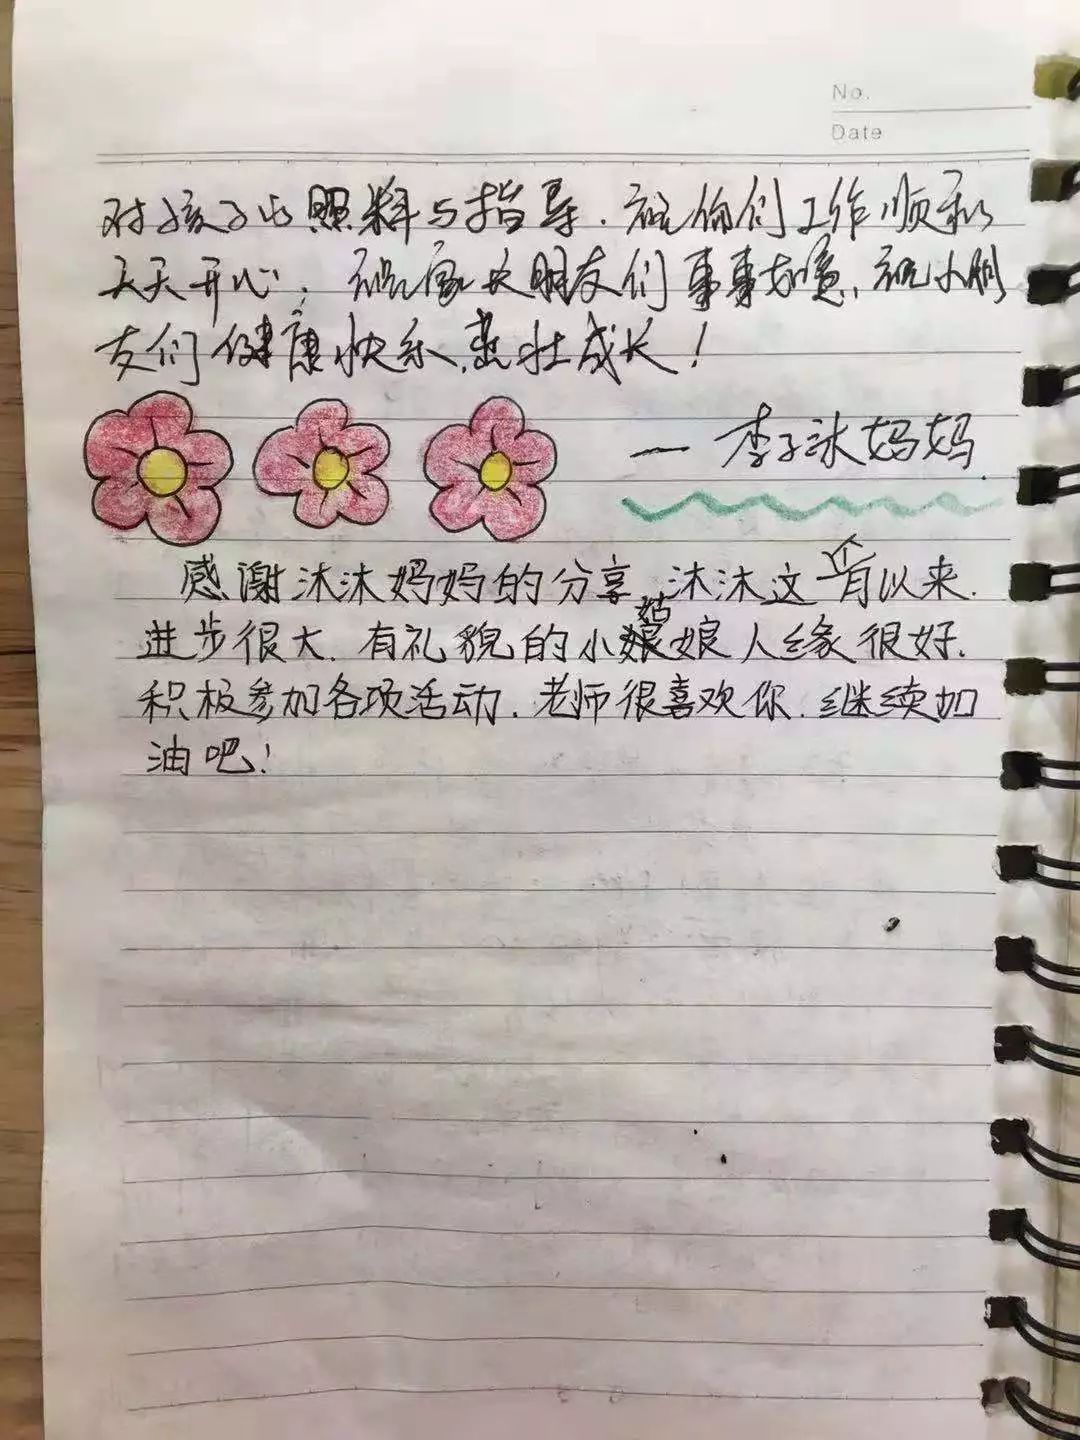 No.
Date
对孩子的照料与指导.祝你们工作顺利
天天开心,祝家长朋友们事事如意、祝小朋
友们健康快乐.茁壮成长!
— 李子沐妈妈
感谢沐沐妈妈的分享.沐沐这个月以来.
进步很大.有礼貌的小姑娘人缘很好.
积极参加各项活动.老师很喜欢你.继续加
油吧!